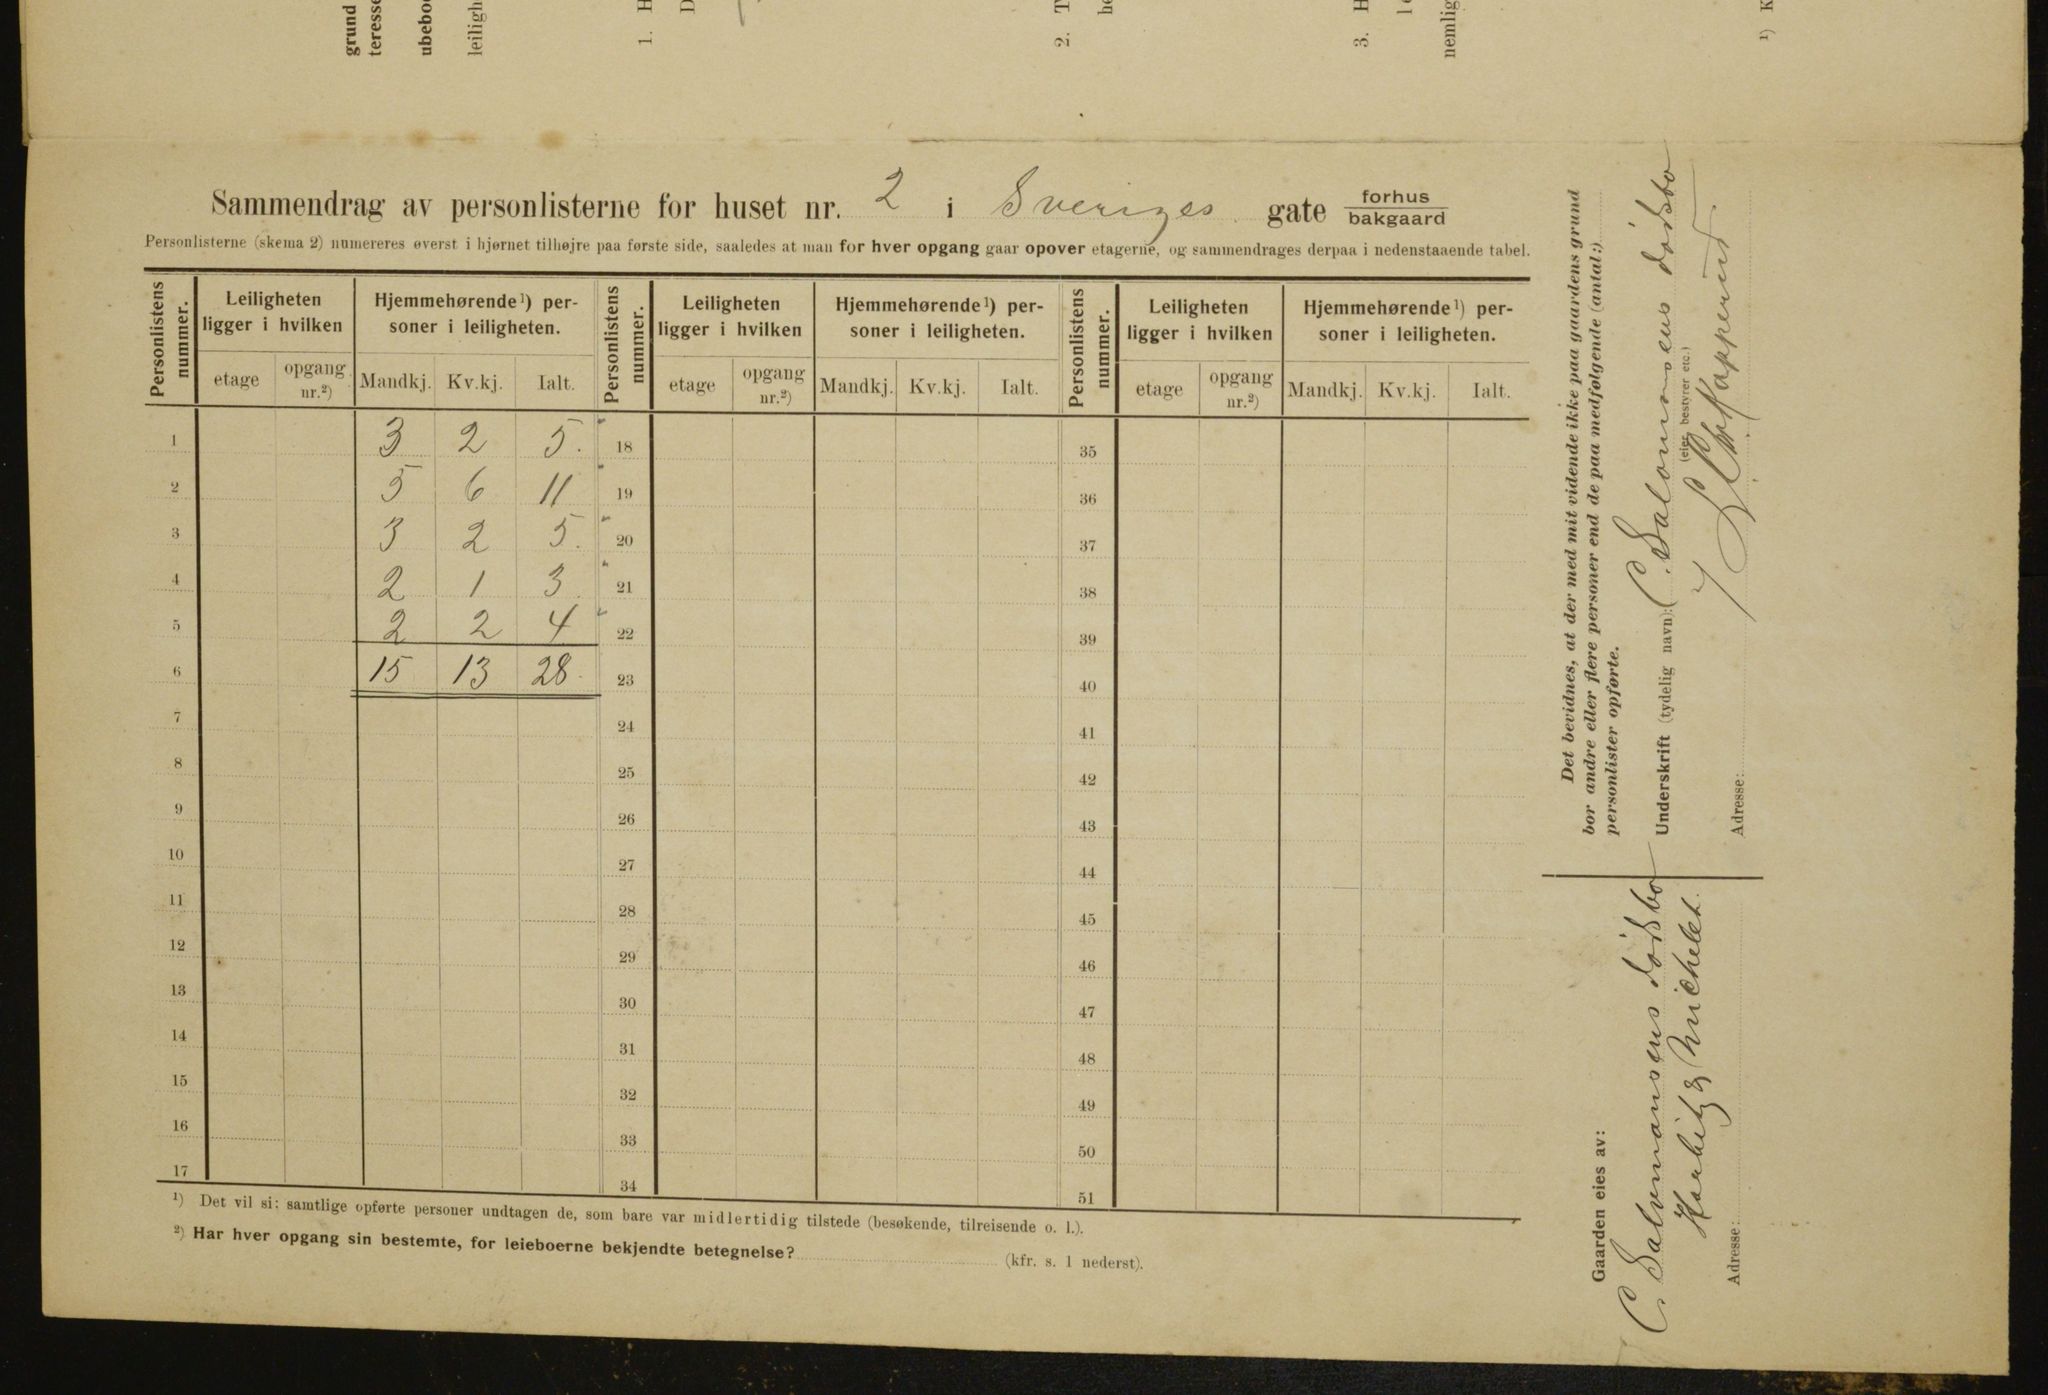 grund
teresse
ubeboe
leiligh
1. H
D
2. T
be
3. H
le
nemlig
¹) K
Sammendrag av personlisterne for huset nr. 2 i Sveriges gate forhus
bakgaard
Personlisterne (skema 2) numereres øverst i hjørnet tilhøjre paa første side, saaledes at man for hver opgang gaar opover etagerne, og sammendrages derpaa i nedenstaaende tabel.
Personlistens nummer. Leiligheten ligger i hvilken Hjemmehørende¹) personer i leiligheten. Personlistens nummer. Leiligheten ligger i hvilken Hjemmehørende¹) personer i leiligheten. Personlistens nummer. Leiligheten ligger i hvilken Hjemmehørende¹) personer i leiligheten.
etage opgang nr.²) Mandkj. Kv.kj. Ialt. etage opgang nr.²) Mandkj. Kv.kj. Ialt. etage opgang nr.²) Mandkj. Kv.kj. Ialt.
1 3 2 5. 18 35
2 5 6 11 19 36
3 3 2 5. 20 37
4 2 1 3 21 38
5 2 2 4 22 39
6 15 13 28. 23 40
7 24 41
8 25 42
9 26 43
10 27 44
11 28 45
12 29 46
13 30 47
14 31 48
15 32 49
16 33 50
17 34 51
¹) Det vil si: samtlige opførte personer undtagen de, som bare var midlertidig tilstede (besøkende, tilreisende o. l.).
²) Har hver opgang sin bestemte, for leieboerne bekjendte betegnelse? (kfr. s. 1 nederst).
Det bevidnes, at der med mit vidende ikke paa gaardens grund
bor andre eller flere personer end de paa medfølgende (antal:)
personlister opførte.
Underskrift (tydelig navn): C. Salomonsens dødsbo
(eier, bestyrer etc.)
Adresse:
Gaarden eies av:
C. Salomonsens dødsbo
Harbitz & Michelet.
Adresse: